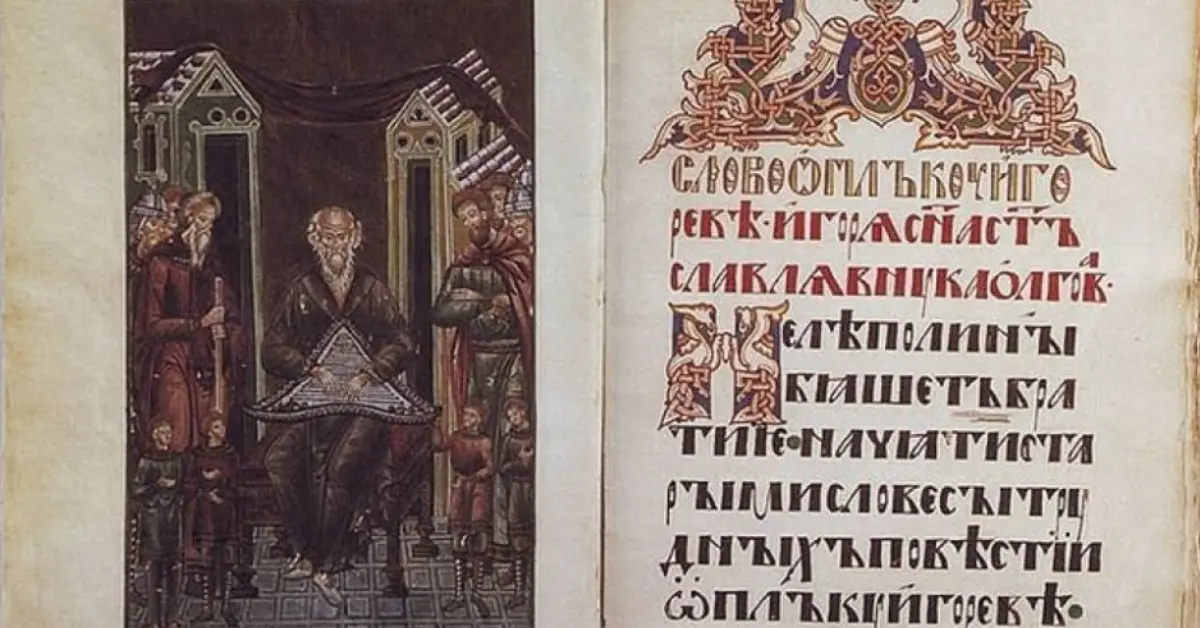 СЛОВОѠПЛЪКОУИГО
РЕВѢ·ИГОРѦСН҃АСТ҃Ъ
СЛАВЛѦВНꙊКАОЛГОВⷶ·
НЕЛѢПОЛИНЪІ
БꙖШЕТЪБРА
ТИѤ·НАЧꙖТИСТА
РЪІМИСЛОВЕСЪІТРꙊ
ДНЪІХЪПОВѢСТІИ
ѠПЛЪКꙊИГОРЕВѢ·